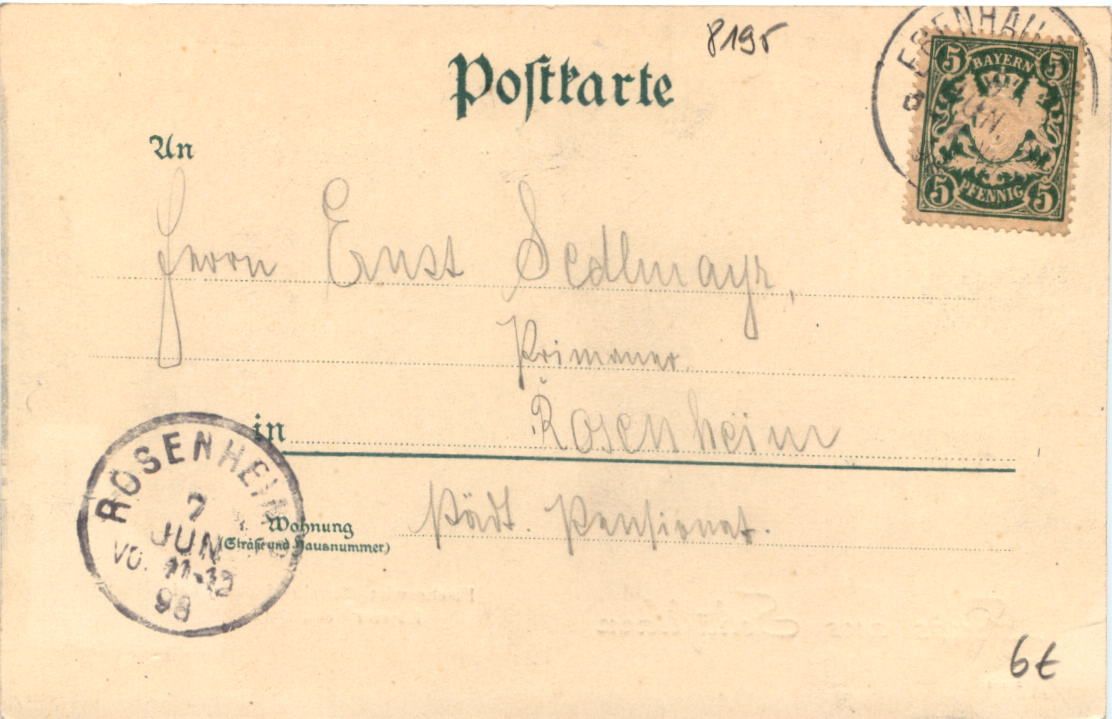 8195
Postkarte
EBENHAU
JUN.
5 BAYERN 5
5 PFENNIG 5
An
Herrn Ernst Sedlmayr,
Primaner.
in Rosenheim
Wohnung
(Straße und Hausnummer)
städt. Pensionat.
ROSENHEIM
7
JUN
VO. 11-12
98
6€